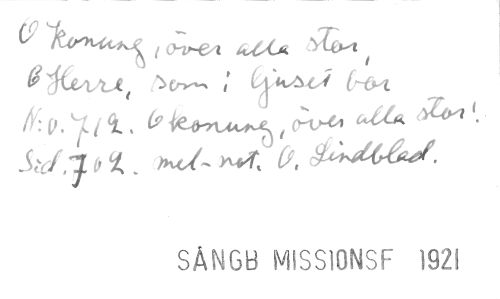 O konung, över alla stor,
O Herre, som i ljuset bor
N:o. 712. O konung, över alla stor!
Sid. 702. mel-not. O. Lindblad.
SÅNGB MISSIONSF 1921